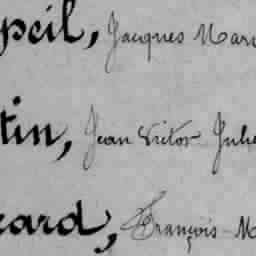 peil, Jacques Mari
tin, Jean Victor Jule
card, François M